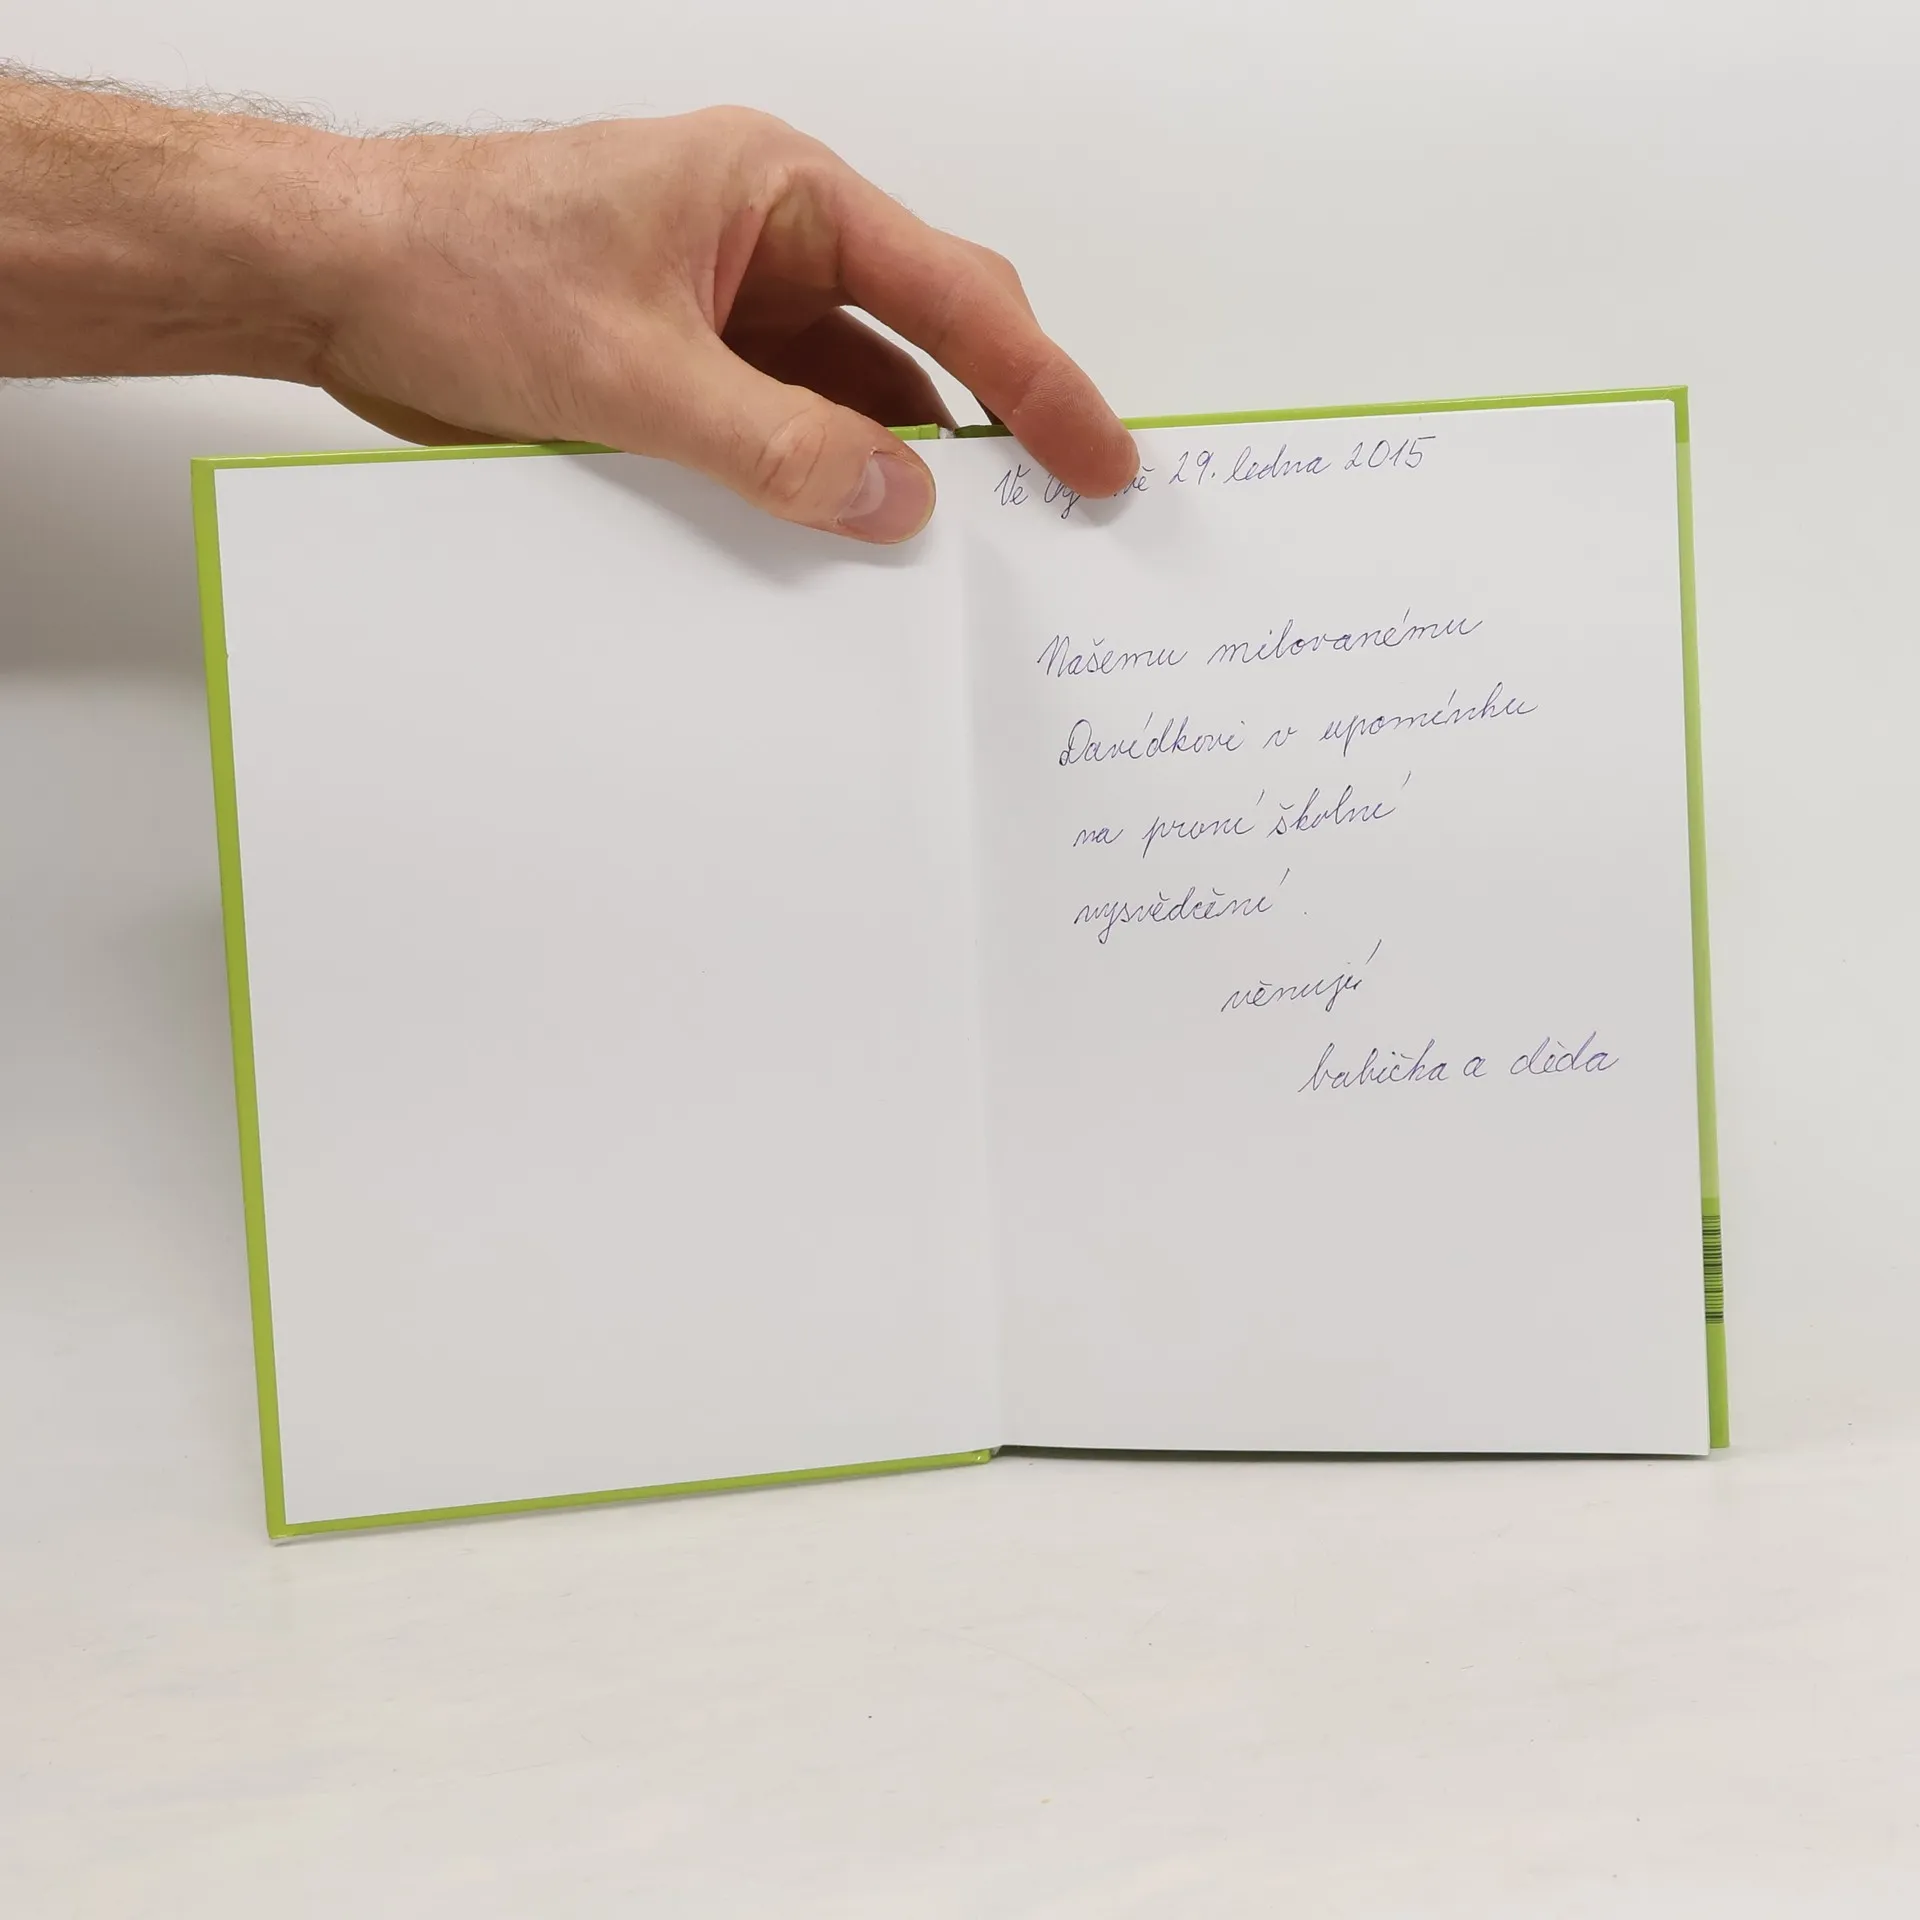 Ve 29. ledna 2015
Našemu milovanému
Davídkovi v upomínku
na první školní
vysvědčení.
věnují
babička a děda